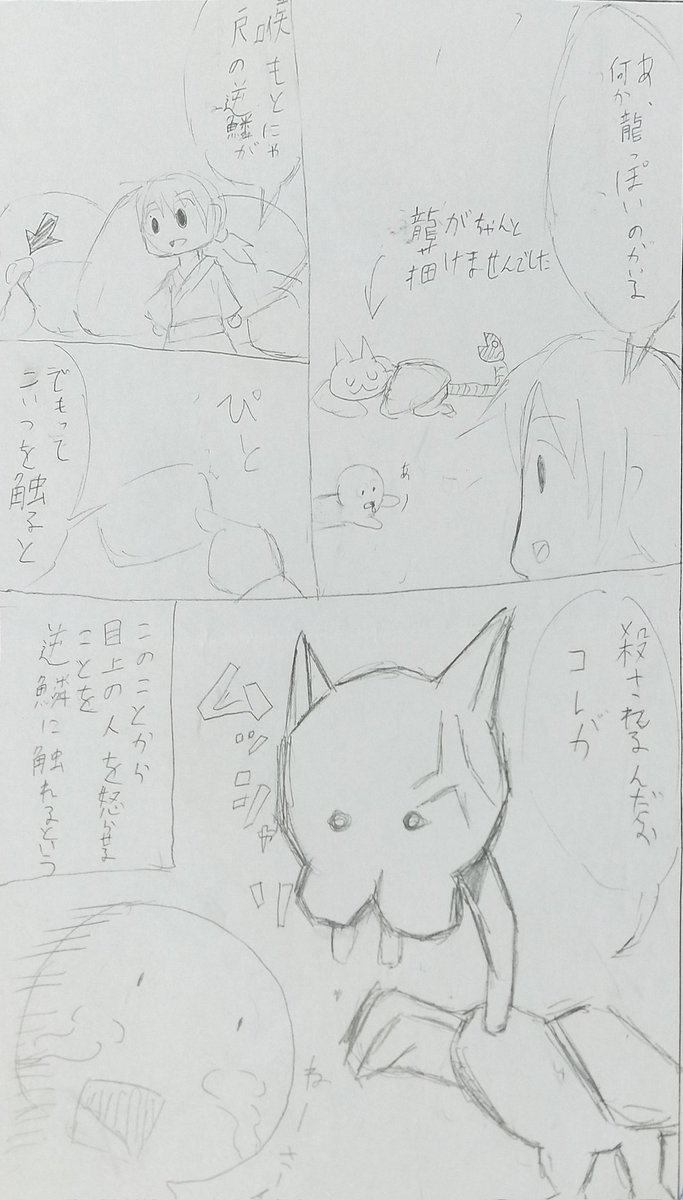 あ、
何か龍っぽいのがいる
龍がちゃんと
描けませんでした
あー
喉もとにゃ
尺の逆鱗が
ぴと
でもって
こいつを触ると
殺されるんだな
コレが
ムッシャァ
このことから
目上の人を怒らせる
ことを
逆鱗に触れるという
ねーさーん